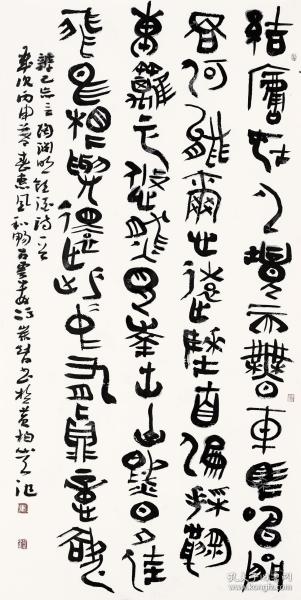 結廬在人境而無車馬喧問
君何能爾心遠地自偏採菊
東籬下悠然見南山山氣日夕佳
飛鳥相與還此中有真意欲
辨已忘言 陶淵明飲酒詩一首
歲次丙申暮春惠風和暢